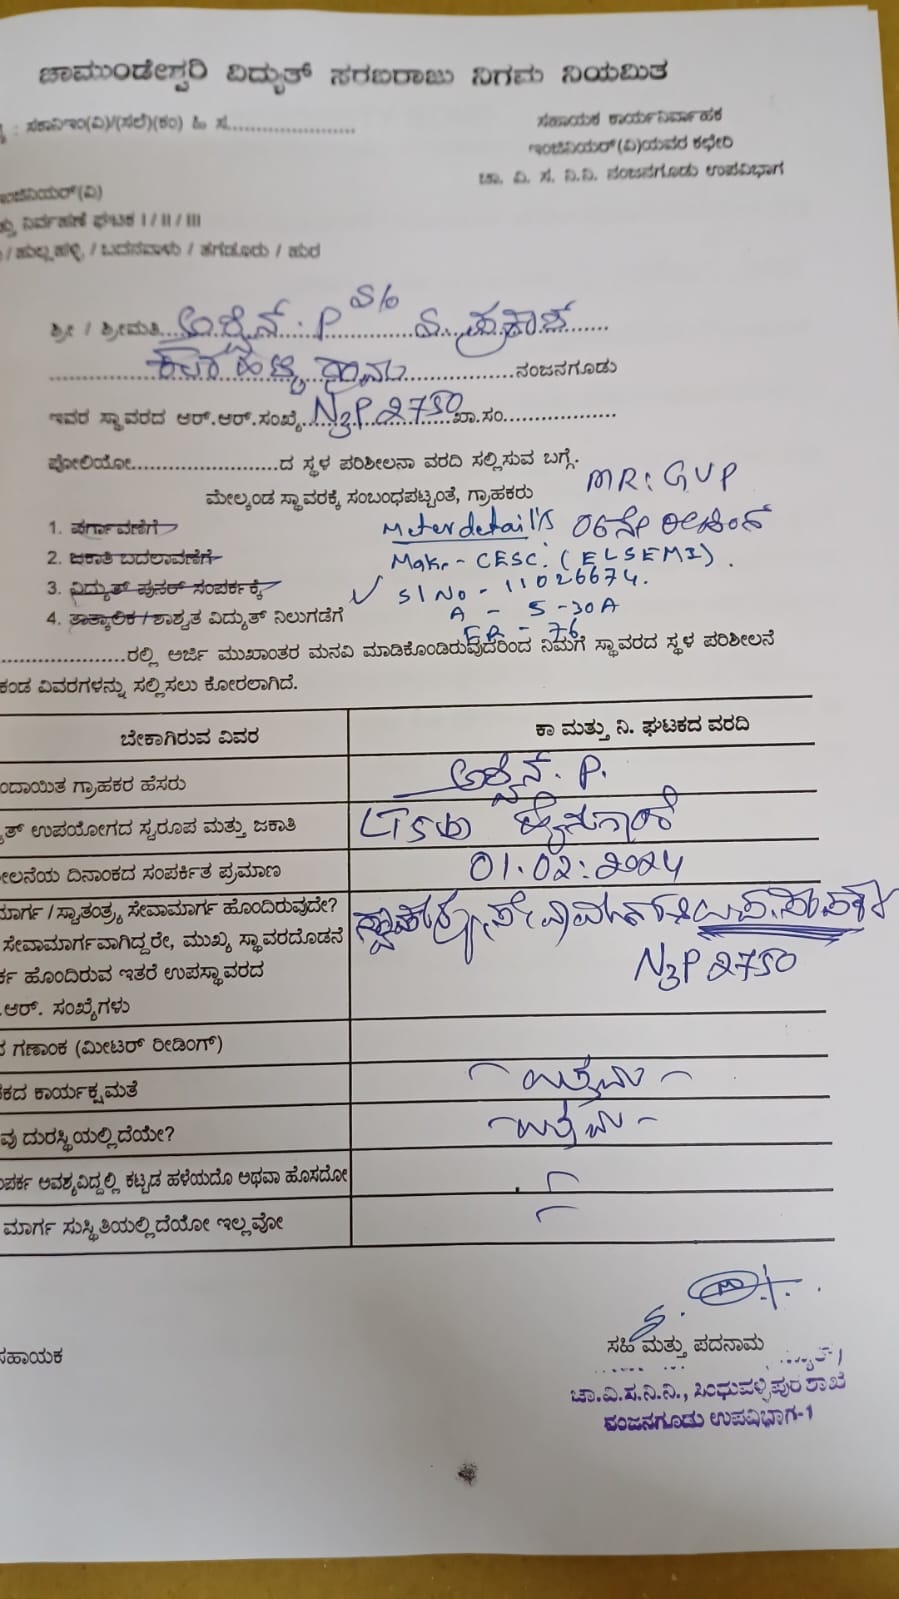 ಚಾಮುಂಡೇಶ್ವರಿ ವಿದ್ಯುತ್ ಸರಬರಾಜು ನಿಗಮ ನಿಯಮಿತ
: ಸಕಾನಿಇಂ(ವಿ)/(ಸಲೆ)(ಕಂ) ಹಿ ಸ.....................
ಸಹಾಯಕ ಕಾರ್ಯನಿರ್ವಾಹಕ
ಇಂಜಿನಿಯರ್(ವಿ)ಯವರ ಕಛೇರಿ
ಚಾ. ವಿ. ಸ. ನಿ.ನಿ. ನಂಜನಗೂಡು ಉಪವಿಭಾಗ
ಇಂಜಿನಿಯರ್(ವಿ)
ನಿರ್ವಹಣೆ ಘಟಕ I / II / III
/ ಹುಲ್ಲಹಳ್ಳಿ, / ಬದನವಾಳು / ತಗಡೂರು / ಹುರ
ಶ್ರೀ / ಶ್ರೀಮತಿ... ಅಶ್ವಿನ್. P S/o ಪ್ರಕಾಶ್......
ಗ್ರಾಮ................ನಂಜನಗೂಡು
ಇವರ ಸ್ಥಾವರದ ಆರ್.ಆರ್.ಸಂಖ್ಯೆ...N3P 2750 ಖಾ.ಸಂ..................
ಪೋಲಿಯೋ.......................ದ ಸ್ಥಳ ಪರಿಶೀಲನಾ ವರದಿ ಸಲ್ಲಿಸುವ ಬಗ್ಗೆ.
MR: GVP
ಮೇಲ್ಕಂಡ ಸ್ಥಾವರಕ್ಕೆ ಸಂಬಂಧಪಟ್ಟಂತೆ, ಗ್ರಾಹಕರು
1. ವರ್ಗಾವಣೆಗೆ
Meter detail's 06ನೇ ರೀಡಿಂಗ್
2. ಜಕಾತಿ ಬದಲಾವಣೆಗೆ
Make - CESC. (ELSEMI).
3. ವಿದ್ಯುತ್ ಪುನರ್ ಸಂಪರ್ಕಕ್ಕೆ
Sl No - 11026674.
4. ತಾತ್ಕಾಲಿಕ / ಶಾಶ್ವತ ವಿದ್ಯುತ್ ನಿಲುಗಡೆಗೆ
A - 5-30A
FR - 76
.....................ರಲ್ಲಿ ಅರ್ಜಿ ಮುಖಾಂತರ ಮನವಿ ಮಾಡಿಕೊಂಡಿರುವುದರಿಂದ ನಿಮಗೆ ಸ್ಥಾವರದ ಸ್ಥಳ ಪರಿಶೀಲನೆ
ಕಂಡ ವಿವರಗಳನ್ನು ಸಲ್ಲಿಸಲು ಕೋರಲಾಗಿದೆ.
ಬೇಕಾಗಿರುವ ವಿವರ
ಕಾ ಮತ್ತು ನಿ. ಘಟಕದ ವರದಿ
ಂದಾಯಿತ ಗ್ರಾಹಕರ ಹೆಸರು
ಅಶ್ವಿನ್. P.
ತ್ ಉಪಯೋಗದ ಸ್ವರೂಪ ಮತ್ತು ಜಕಾತಿ
ೀಲನೆಯ ದಿನಾಂಕದ ಸಂಪರ್ಕಿತ ಪ್ರಮಾಣ
01.02:2024
ಮಾರ್ಗ / ಸ್ವಾತಂತ್ರ್ಯ ಸೇವಾಮಾರ್ಗ ಹೊಂದಿರುವುದೇ?
ಸೇವಾಮಾರ್ಗವಾಗಿದ್ದರೇ, ಮುಖ್ಯ ಸ್ಥಾವರದೊಡನೆ
ರ್ಕ ಹೊಂದಿರುವ ಇತರೆ ಉಪಸ್ಥಾವರದ
.ಆರ್. ಸಂಖ್ಯೆಗಳು
N3P 2750
ಗಣಾಂಕ (ಮೀಟರ್ ರೀಡಿಂಗ್)
ಕದ ಕಾರ್ಯಕ್ಷಮತೆ
- ಉತ್ತಮ -
ವು ದುರಸ್ಥಿಯಲ್ಲಿದೆಯೇ?
- ಉತ್ತಮ -
ಂಪರ್ಕ ಅವಶ್ಯವಿದ್ದಲ್ಲಿ ಕಟ್ಟಡ ಹಳೆಯದೊ ಅಥವಾ ಹೊಸದೋ
ಮಾರ್ಗ ಸುಸ್ಥಿತಿಯಲ್ಲಿದೆಯೋ ಇಲ್ಲವೋ
ಸಹಿ ಮತ್ತು ಪದನಾಮ
ಸಹಾಯಕ
ಚಾ.ವಿ.ಸ.ನಿ.ನಿ., ಸಿಂಧುವಳ್ಳಿಪುರ ಶಾಖೆ
ನಂಜನಗೂಡು ಉಪವಿಭಾಗ-1